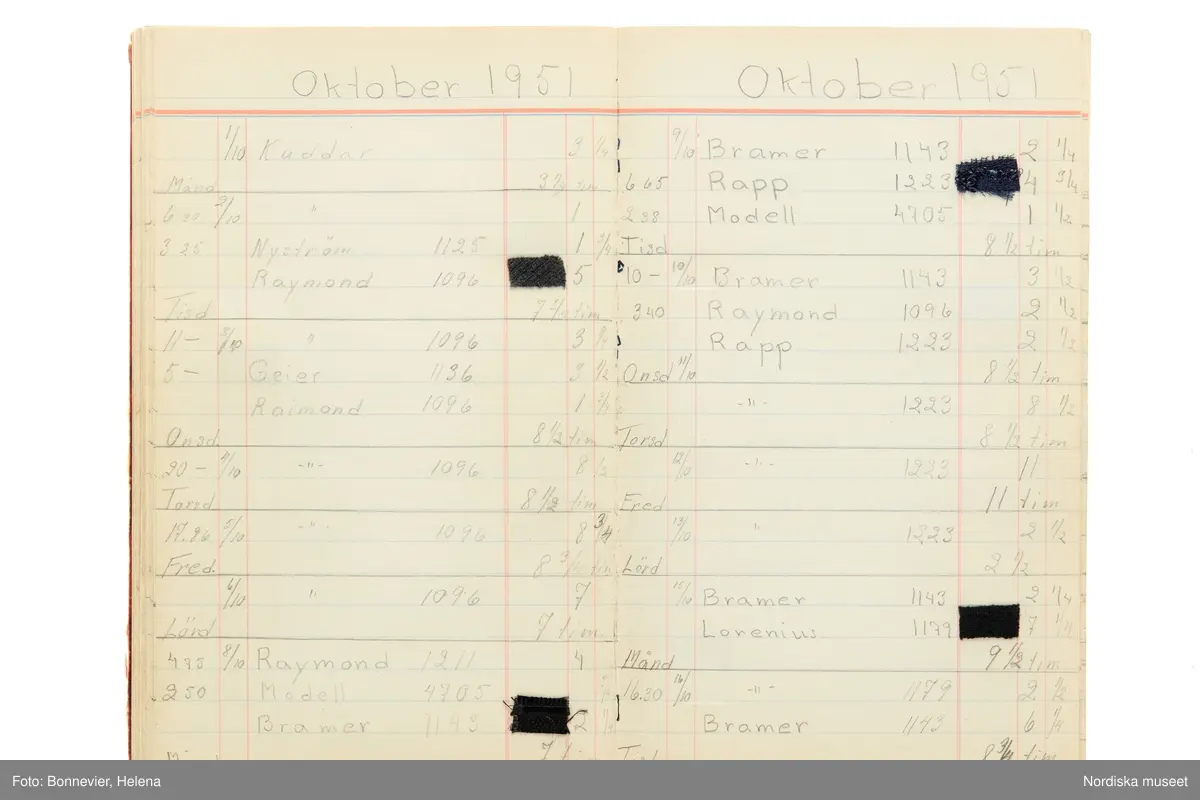 Oktober 1951
1/10 Kuddar 3 3/4
Månd 3 3/4 tim
2/10 " 1
3 25 Nyström 1125 1 3/4
Raymond 1096 5
Tisd 7 tim
11 — 3/10 " 1096 3
5 — Geier 1136 3 1/2
Raimond 1096 1
Onsd. 8 1/2 tim
20 — 4/10 -"- 1096 8 1/2
Torsd 8 1/2 tim
17.86 5/10 -"- 1096 8 3/4
Fred. 8 3/4 tim
6/10 " 1096 7
Lörd 7 tim
8/10 Raymond 1211 4
2 50 Modell 4705
Bramer 1143 2
7 tim
Oktober 1951
9/10 Bramer 1143 2 1/4
6 65 Rapp 1223 4 3/4
2 38 Modell 4705 1 1/2
Tisd 8 1/2 tim
10 — 10/10 Bramer 1143 3 1/2
3 40 Raymond 1096 2 1/2
Rapp 1223 2 1/2
Onsd 11/10 8 1/2 tim
-"- 1223 8 1/2
Torsd 8 1/2 tim
12/10 -"- 1223 11
Fred 11 tim
13/10 " 1223 2 1/2
Lörd 2 1/2
15/10 Bramer 1143 2 1/4
Lorenius 1179 7 1/4
Månd 9 1/2 tim
16.30 16/10 -"- 1179 2 1/2
Bramer 1143 6 1/4
8 3/4 tim
Foto: Bonnevier, Helena
Nordiska museet